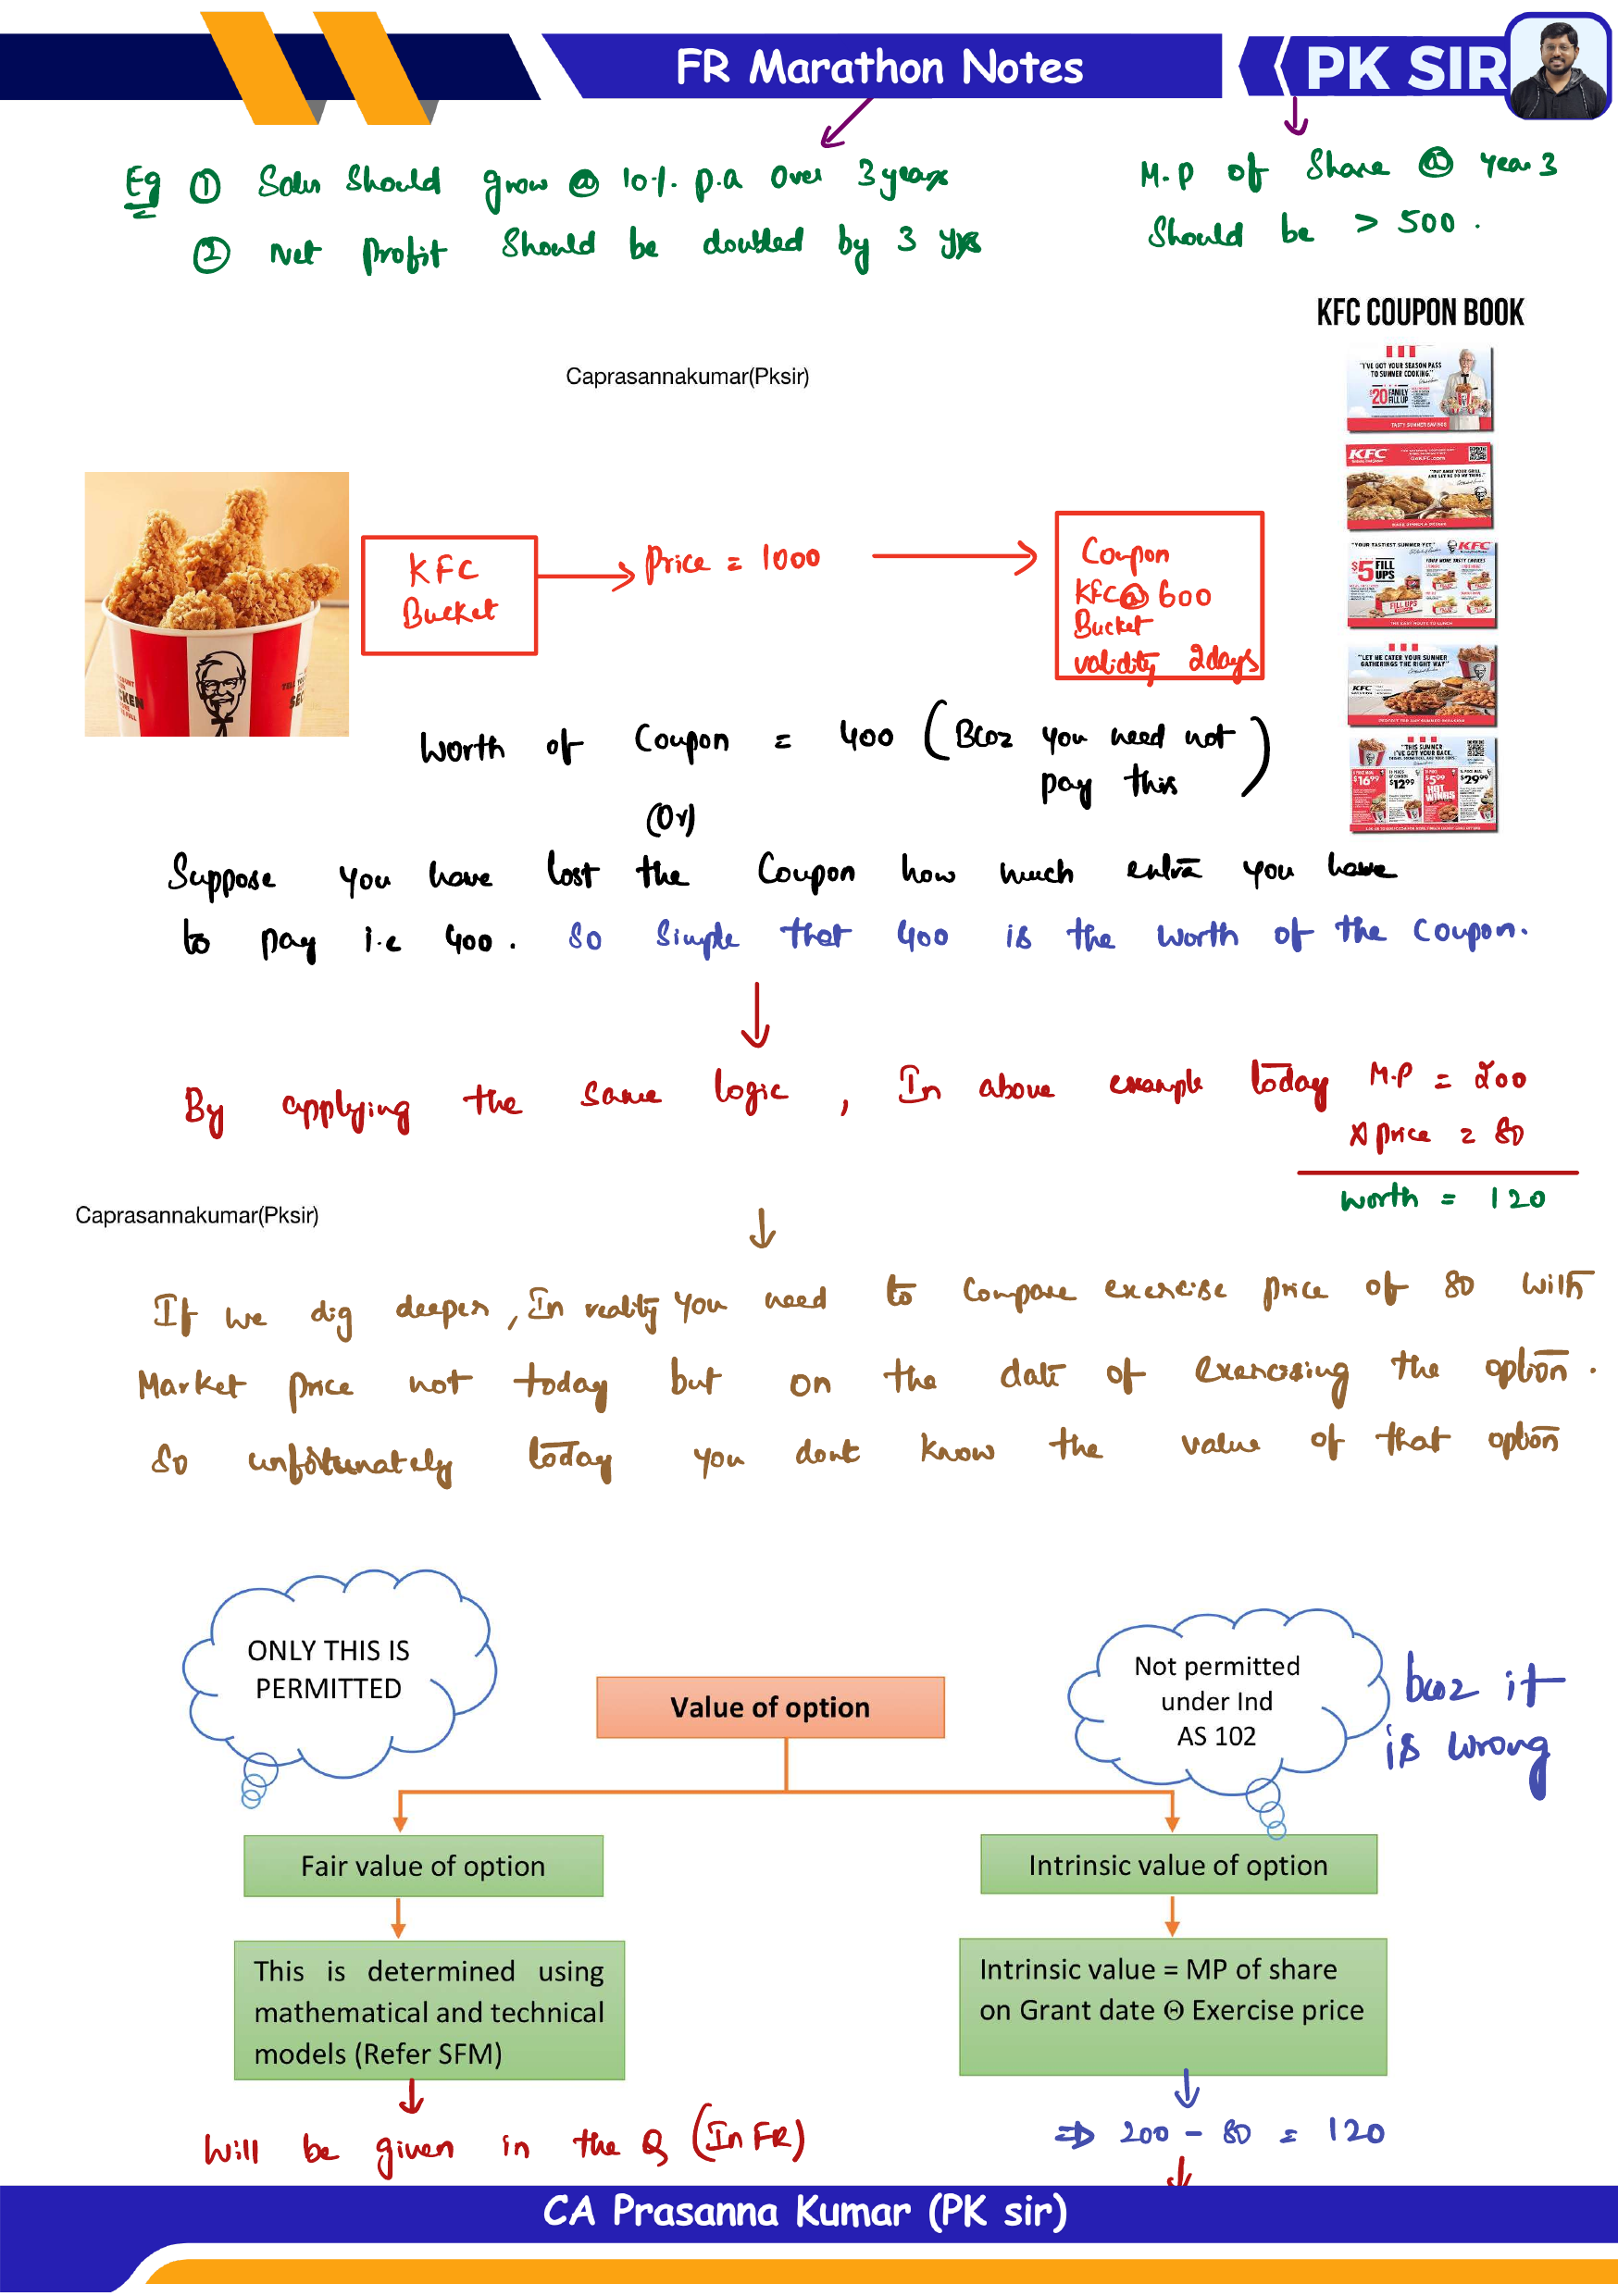 FR Marathon Notes
PK SIR
Eg ① Sales Should grow @ 10%. p.a Over 3 years
② Net Profit Should be doubled by 3 yrs
M.P of Share @ year 3
Should be > 500.
KFC COUPON BOOK
Caprasannakumar(Pksir)
"I'VE GOT YOUR SEASON PASS
TO SUMMER COOKING."
$20 FAMILY
FILL UP
TASTY SUMMER SAVINGS
KFC
"YOUR TASTIEST SUMMER YET"
KFC
$5 FILL
UPS
FILL UPS
"LET ME CATER YOUR SUMMER
GATHERINGS THE RIGHT WAY"
KFC
"THIS SUMMER
I'VE GOT YOUR BACK.
$16.99
$12.99
$5.99
HOT
WINGS
$29.99
KFC
Bucket
Price = 1000
Coupon
KFC @ 600
Bucket
validity 2days
Worth of Coupon = 400 (Bcoz you need not
pay this)
(Or)
Suppose you have lost the Coupon how much extra you have
to pay i.e 400. So Simple that 400 is the worth of the coupon.
By applying the same logic, In above example today M.P = 200
X price = 80
worth = 120
Caprasannakumar(Pksir)
If we dig deeper, In reality you need to Compare exercise price of 80 with
Market price not today but on the date of exercising the option.
So unfortunately today you dont know the value of that option
ONLY THIS IS
PERMITTED
Value of option
Not permitted
under Ind
AS 102
bcoz it
is wrong
Fair value of option
Intrinsic value of option
This is determined using
mathematical and technical
models (Refer SFM)
Intrinsic value = MP of share
on Grant date Θ Exercise price
Will be given in the Q (In FR)
⇒ 200 - 80 = 120
CA Prasanna Kumar (PK sir)